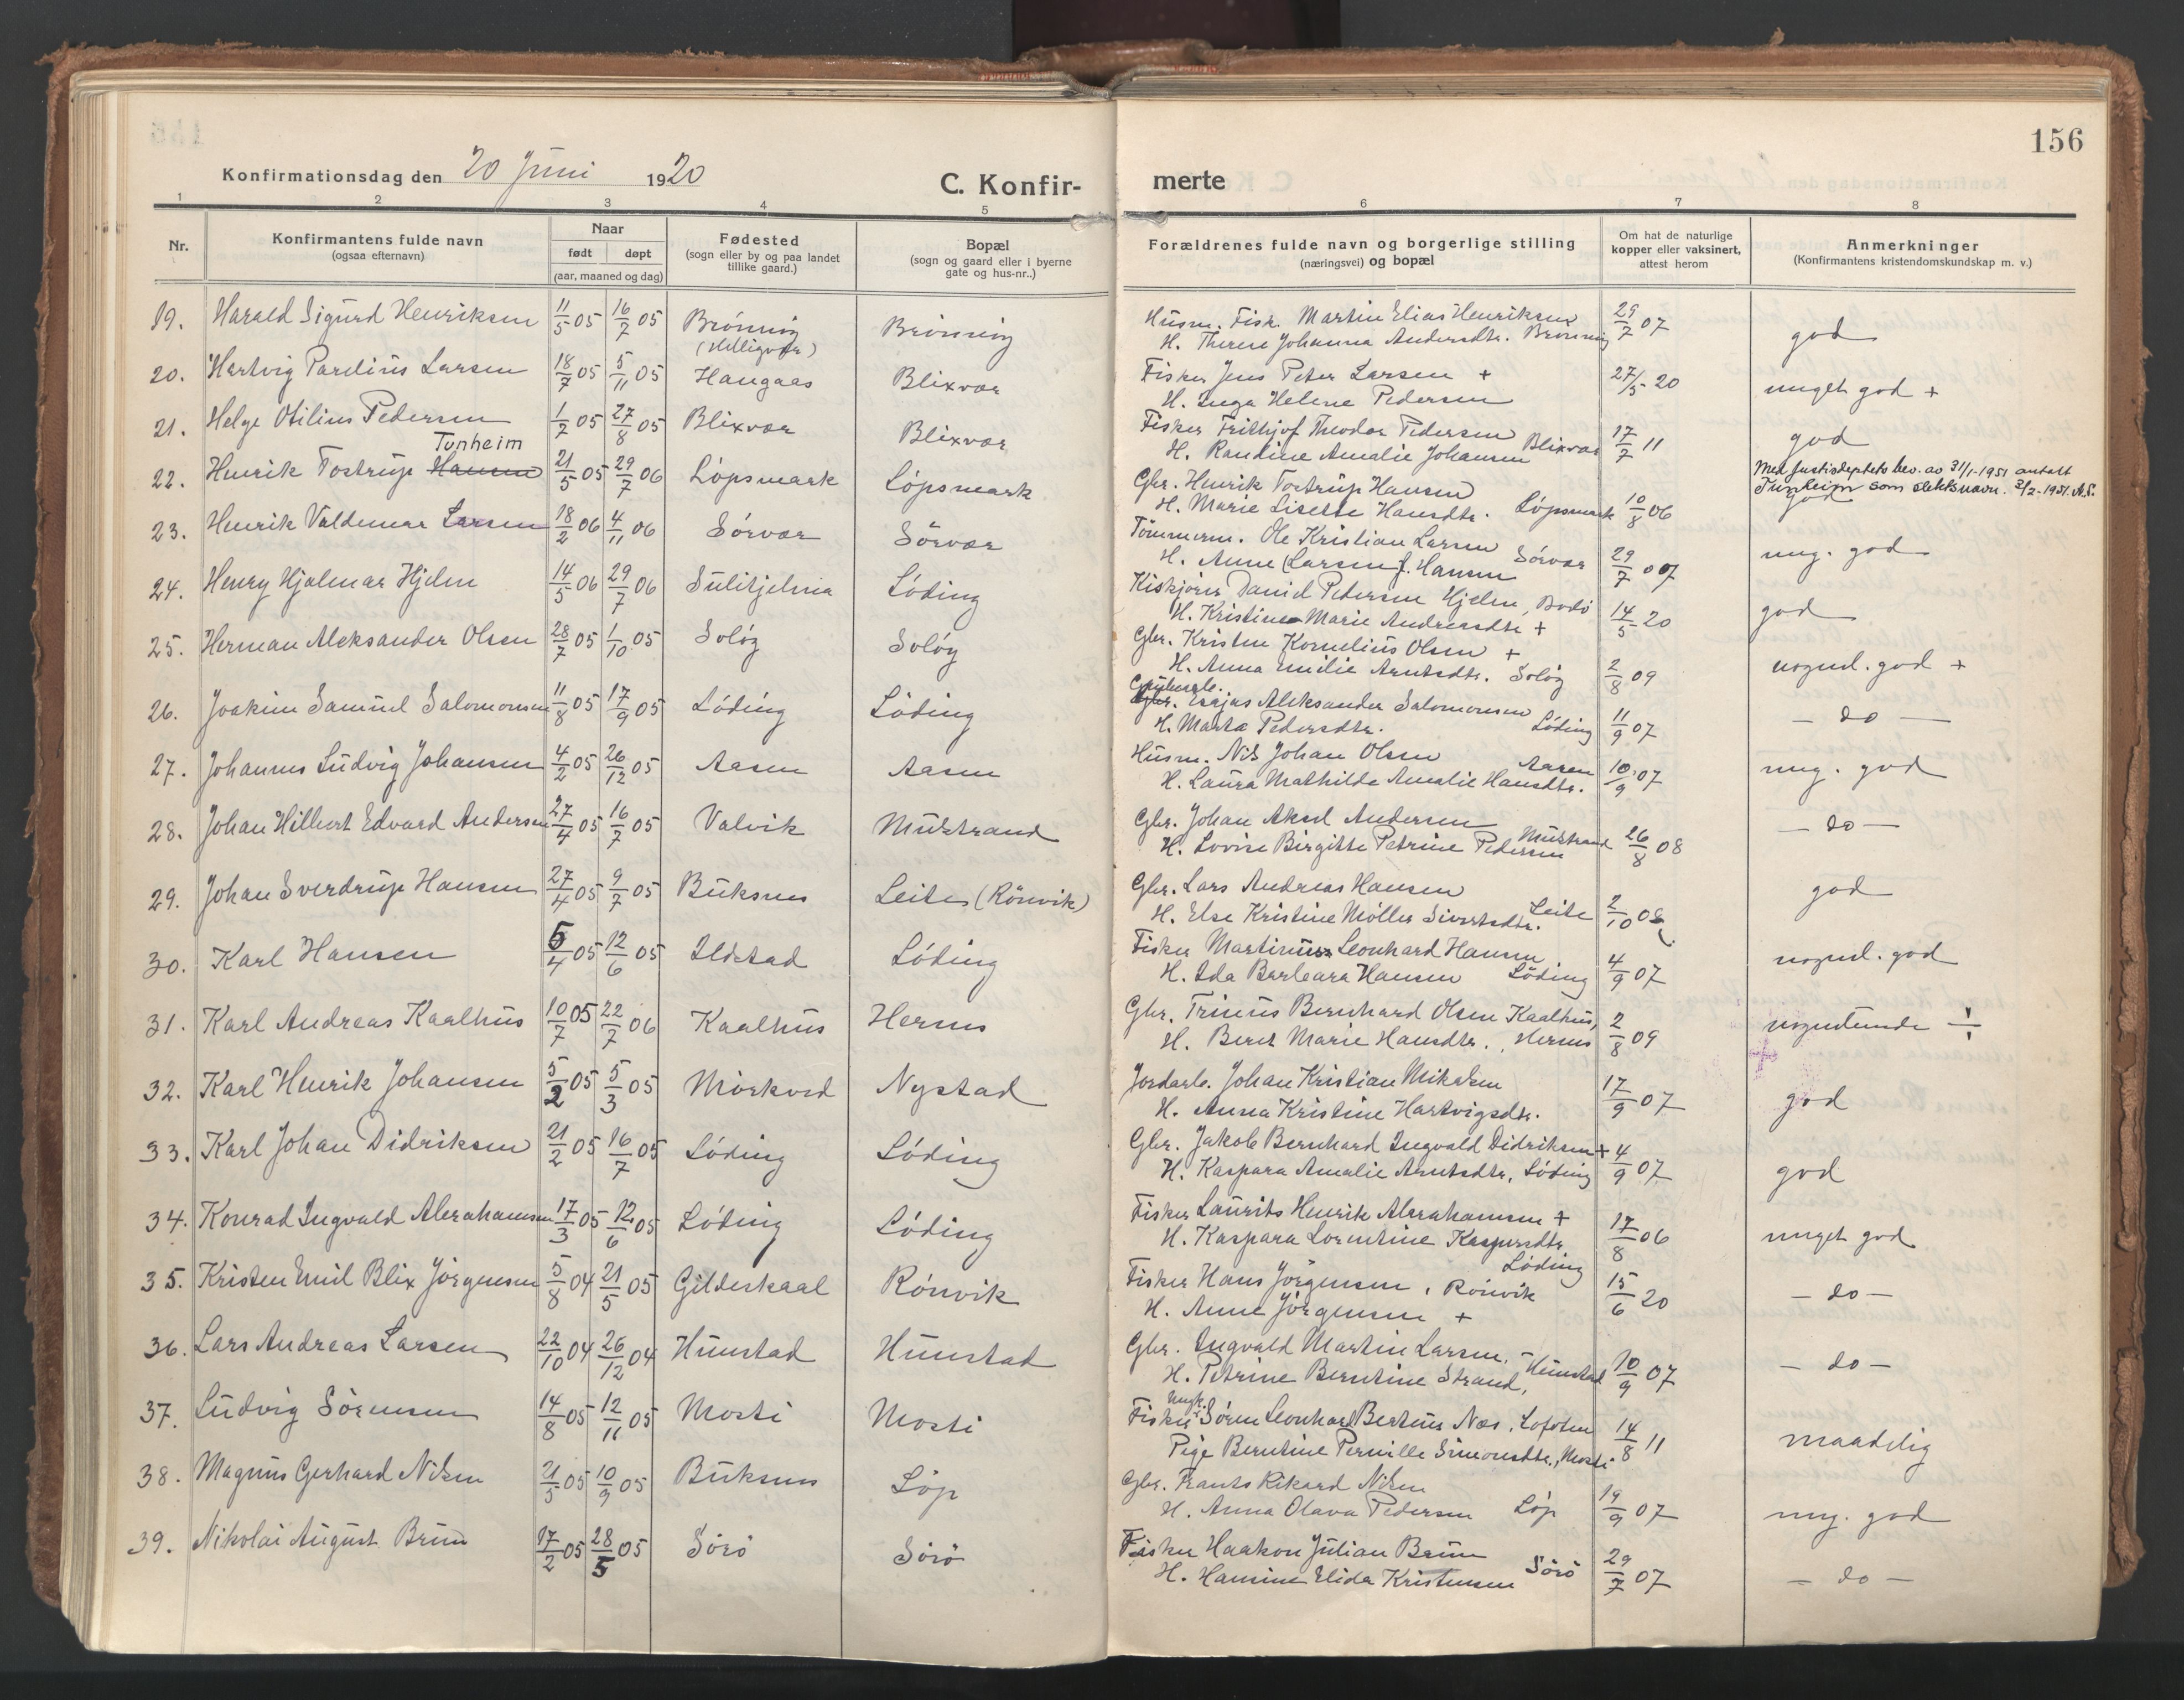 156
Konfirmationsdag den 20 Juni 1920
C. Konfir-
merte
1 2 3 4 5 6 7 8
Nr.
Konfirmantens fulde navn
(ogsaa efternavn)
Naar
født døpt
(aar, maaned og dag)
Fødested
(sogn eller by og paa landet
tillike gaard.)
Bopæl
(sogn og gaard eller i byerne
gate og hus-nr..)
Forældrenes fulde navn og borgerlige stilling
(næringsvei) og bopæl
Om hat de naturlige
kopper eller vaksinert,
attest herom
Anmerkninger
(Konfirmantens kristendomskundskap m. v.)
19. Harald Sigurd Henriksen 11/5 05 16/7 05 Brönnöy (Helligvær) Brönnöy
Husm. Fisk. Martin Elias Henriksen 29/7 07 god
H. Therese Johanna Andersdtr. Brönnöy
20. Hartvig Parelius Larsen 18/7 05 5/11 05 Haugaas Blixvær
Fisker Jens Peter Larsen + 27/5 20 meget god +
H. Inga Helene Pedersen
21. Helge Otilius Pedersen 1/7 05 27/8 05 Blixvær Blixvær
Fisker Frithjof Theodor Pedersen 17/7 11 god
H. Randine Amalie Johansen Blixvær
Tunheim
22. Henrik Tostrup Hansen 21/5 05 29/7 06 Löpsmark Löpsmark
Gbr. Henrik Tostrup Hansen
H. Marie Lisette Hansdtr. Löpsmark 10/8 06
Med Justisdeptets bev. av 31/1-1951 antatt
Tunheim som slektsnavn. 2/2-1951. A.S.
god
23. Henrik Valdemar Larsen 18/2 06 4/11 06 Sörvær Sörvær
Tömmerm. Ole Kristian Larsen 29/7 07 meg. god
H. Anne (Larsen f. Hansen Sörvær
24. Henry Hjalmar Hjelm 14/5 06 29/7 06 Sulitjelma Löding
Kiskjörer Daniel Pedersen Hjelm, Bodö 14/5 20 god
H. Kristine Marie Andreasdtr +
25. Herman Aleksander Olsen 28/7 05 1/10 05 Solöy Solöy
Gbr. Kristen Kornelius Olsen + 2/8 09 nogenl. god +
H. Anna Emilie Arntsdtr. Solöy
26. Joakim Samuel Salomonsen 11/8 05 17/9 05 Löding Löding
Grubearb.
Esajas Aleksander Salomonsen 11/9 07 — do —
H. Marta Pedersdtr. Löding
27. Johannes Ludvig Johansen 4/2 05 26/12 05 Aasen Aasen
Husm. Nils Johan Olsen Aasen 10/9 07 meg. god
H. Laura Mathilde Amalie Hansdtr.
28. Johan Hilbert Edvard Andersen 27/4 05 16/7 05 Valvik Mulstrand
Gbr. Johan Aksel Andersen 26/8 08 — do —
H. Lovise Birgitte Petrine Pedersen Mulstrand
29. Johan Sverdrup Hansen 27/4 05 9/7 05 Buksnes Leite (Rönvik)
Gbr. Lars Andreas Hansen 2/10 08 god
H. Else Kristine Möller Sivertsdtr. Leite
30. Karl Hansen 5/4 05 12/6 05 Ildstad Löding
Fisker Martinus Leonhard Hansen 4/9 07 nogenl. god
H. Ida Barbara Hansen Löding
31. Karl Andreas Kaalhus 10/7 05 22/7 06 Kaalhus Hernes
Gbr. Trinus Bernhard Olsen Kaalhus, 2/8 09 nogenlunde
H. Beret Marie Hansdtr., Hernes
32. Karl Henrik Johansen 5/2 05 5/3 05 Mörkved Nystad
Jordarb. Johan Kristian Mikalsen 17/9 07 god
H. Anna Kristine Hartvigsdtr.
33. Karl Johan Didriksen 21/2 05 16/7 05 Löding Löding
Gbr. Jakob Bernhard Ingvald Didriksen + 4/9 07 god
H. Kaspara Amalie Arntsdtr, Löding
34. Konrad Ingvald Abrahamsen 17/3 05 12/6 05 Löding Löding
Fisker Laurits Henrik Abrahamsen + 17/8 06 meget god
H. Kaspara Lorentine Kaspersdtr. Löding
35. Kristen Emil Blix Jörgensen 5/8 04 21/5 05 Gildeskaal Rönvik
Fisker Hans Jörgensen, Rönvik 15/6 20 — do —
H. Anne Jörgensen +
36. Lars Andreas Larsen 22/10 04 26/12 04 Hunstad Hunstad
Gbr. Ingvald Martin Larsen, 10/9 07 — do —
H. Petrine Berntine Strand, Hunstad
37. Ludvig Sörensen 14/8 05 12/11 05 Mosti Mosti
Ungk.
Fisker Sören Leonhard Berteus Næs, Lofoten 14/8 11 maadelig
Pige Berntine Pernille Simonsdtr., Mosti
38. Magnus Gerhard Nilsen 21/5 05 10/9 05 Buksnes Löp
Gbr. Frants Rikard Nilsen 19/9 07 meg. god
H. Anna Olava Pedersen Löp
39. Nikolai August Brun 17/2 05 28/5 05 Sörö Sörö
Fisker Haakon Julian Brun 29/7 07 — do —
H. Hansine Elida Kristensen Sörö